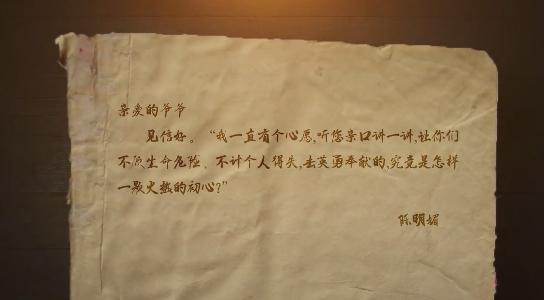 亲爱的爷爷
见信好。“我一直有个心愿,听您亲口讲一讲,让你们
不顾生命危险、不计个人得失,去英勇奉献的,究竟是怎样
一颗火热的初心?”
陈明媚